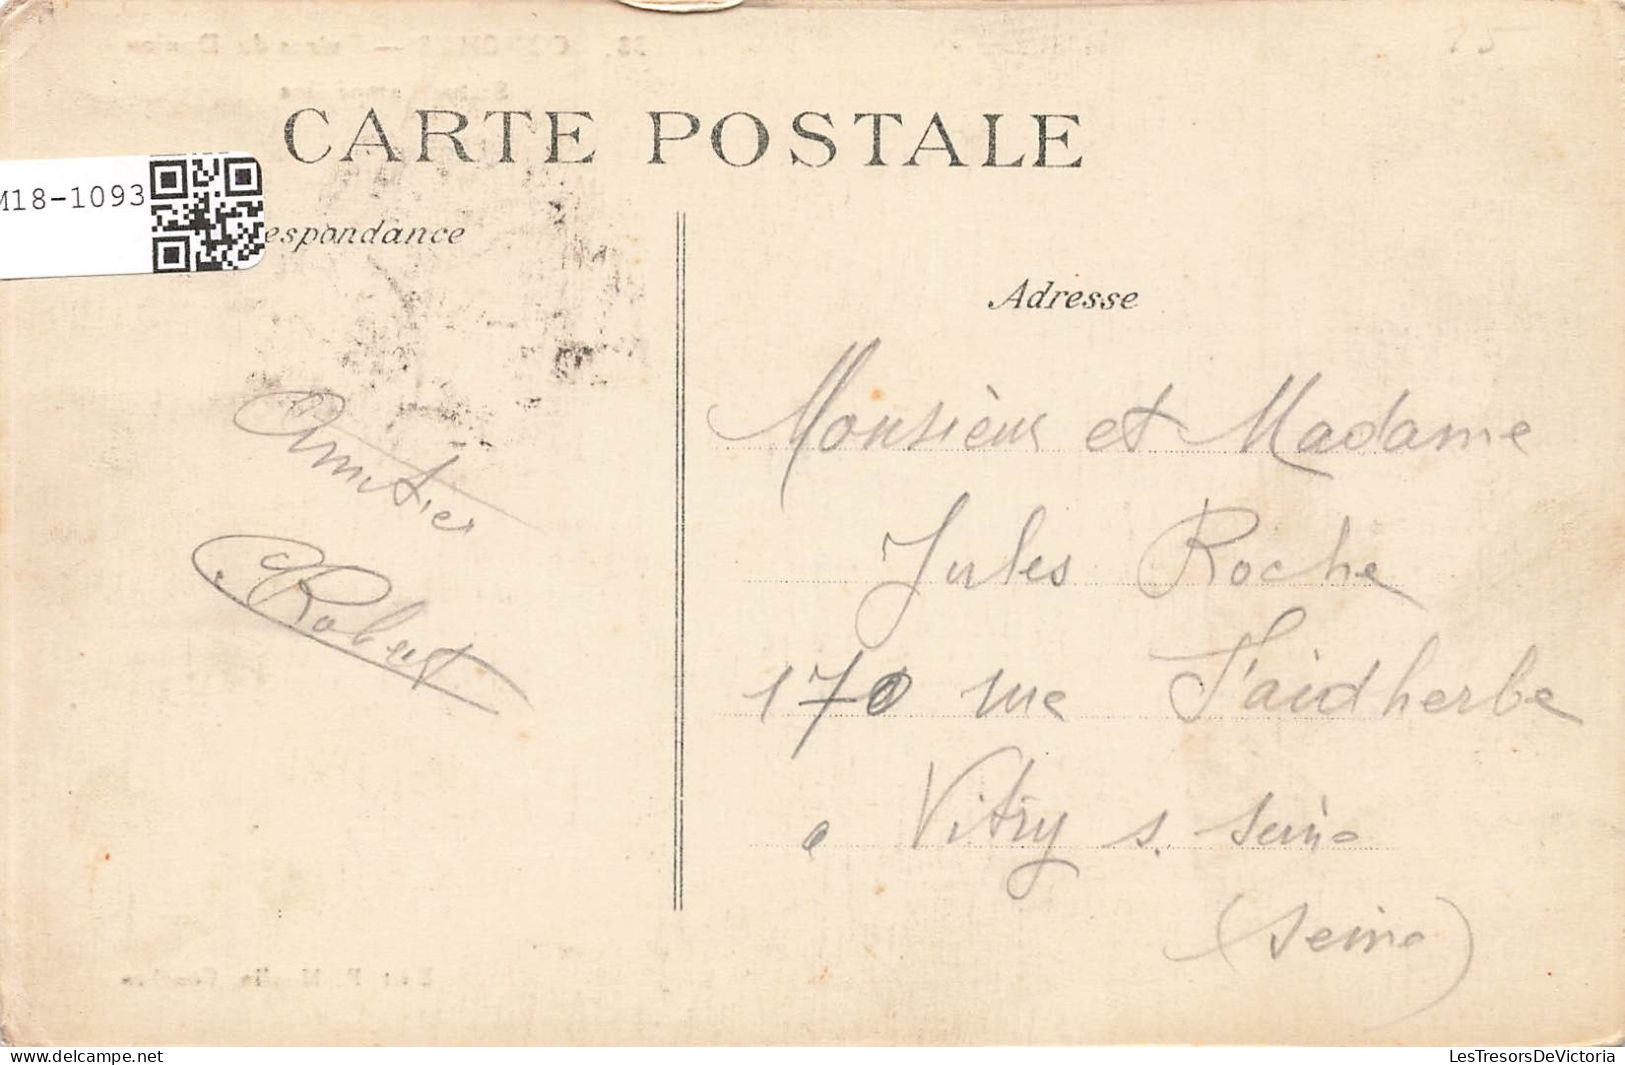 CARTE POSTALE
M18-1093
espondance
Adresse
Amitiés
Robert
Monsieur et Madame
Jules Roche
170 rue Faidherbe
a Vitry s. Seine
(Seine)
LesTresorsDeVictoria